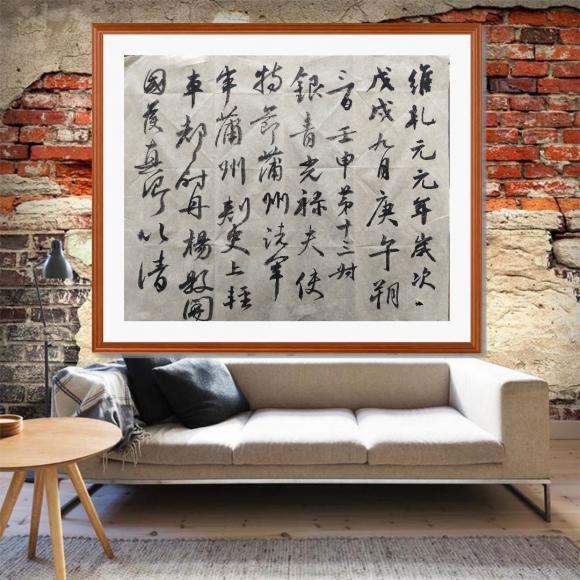 維乾元元年歲次
戊戌九月庚午朔
三日壬申第十三叔
銀青光祿夫使
持節蒲州諸軍
事蒲州刺史上輕
車都尉丹楊縣開
國侯真卿以清